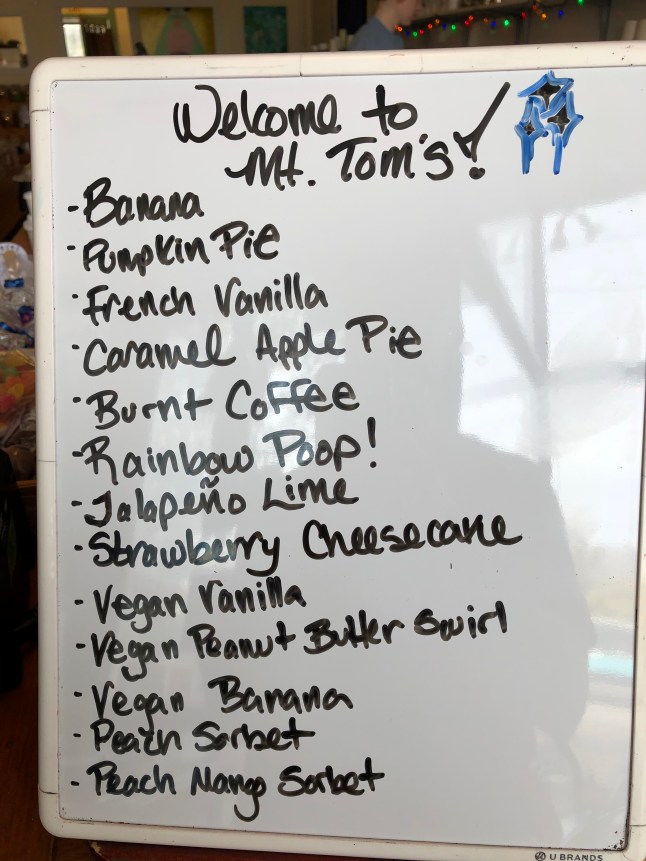 Welcome to
Mt. Tom's!
- Banana
- Pumpkin Pie
- French Vanilla
- Caramel Apple Pie
- Burnt Coffee
- Rainbow Poop!
- Jalapeño Lime
- Strawberry Cheesecake
- Vegan Vanilla
- Vegan Peanut Butter Swirl
- Vegan Banana
- Peach Sorbet
- Peach Mango Sorbet
U BRANDS